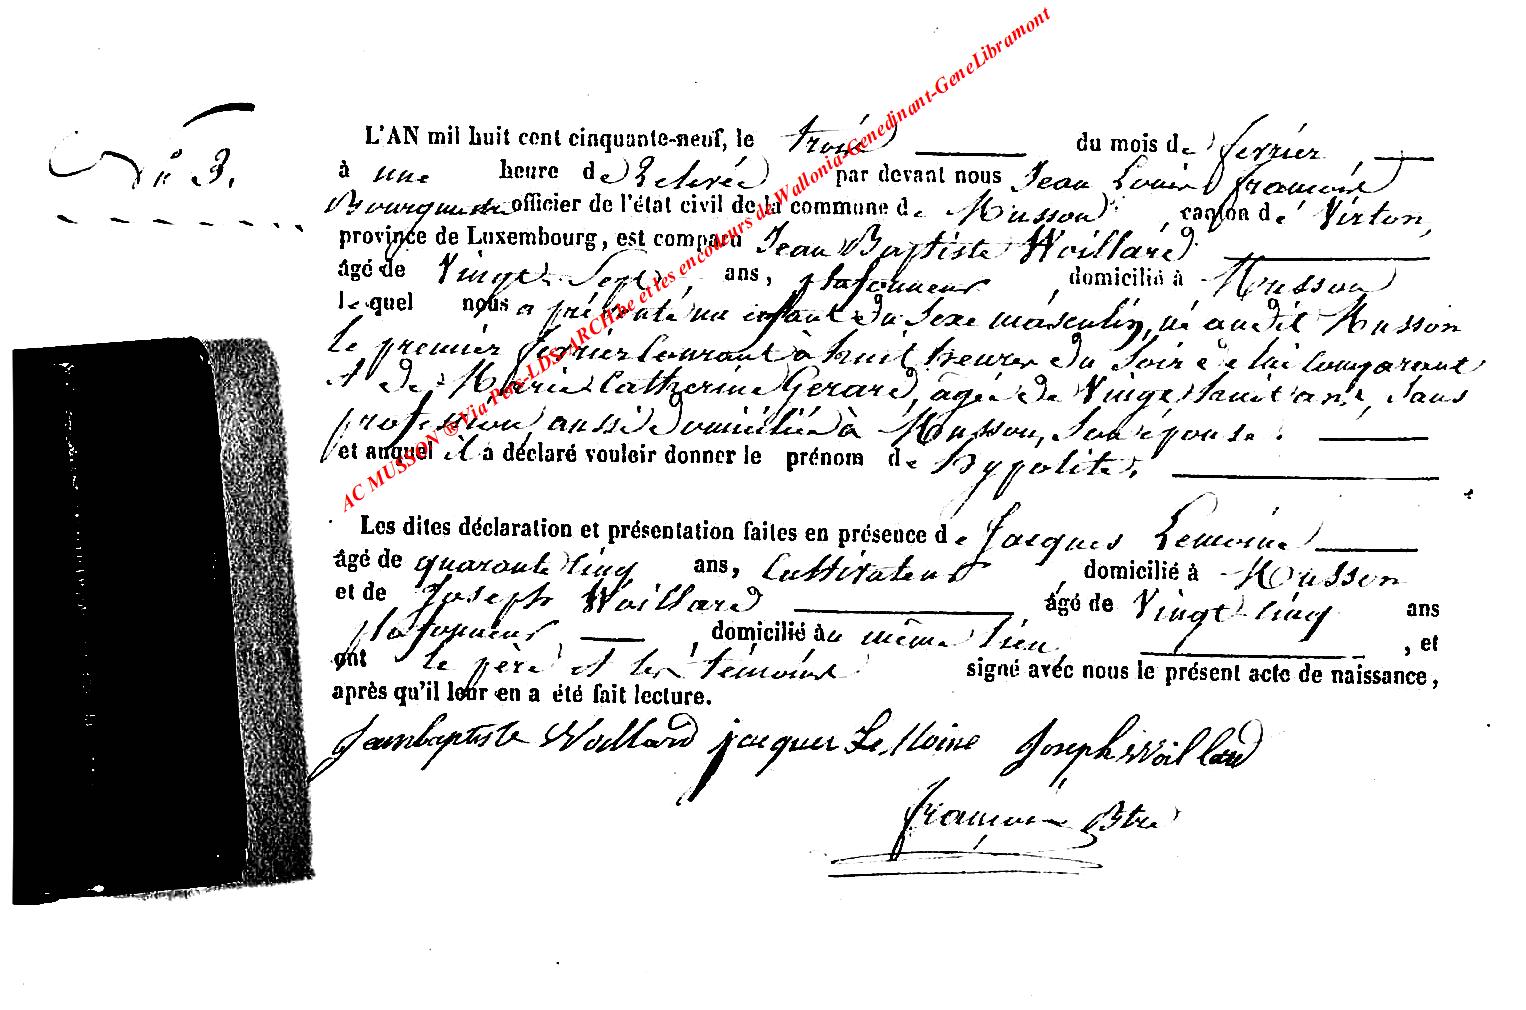 N° 3.
L'AN mil huit cent cinquante-neuf, le trois du mois de février
à une heure de relevée par devant nous Jean Louis François
Bourgmestre officier de l'état civil de la commune de Musson, canton de Virton,
province de Luxembourg, est comparu Jean Baptiste Woillard
âgé de Vingt Sept ans, plafonneur, domicilié à Musson
lequel nous a présenté un enfant du Sexe masculin, né audit Musson
le premier février Courant à huit heures du Soir de lui Comparant
et de Marie Catherine Gerard, âgée de Vingt huit ans, Sans
profession, aussi domiciliée à Musson, Son épouse.
et auquel il a déclaré vouloir donner le prénom de hypolite,
Les dites déclaration et présentation faites en présence de Jacques Lemoine
âgé de quarante Cinq ans, Cultivateur, domicilié à Musson
et de Joseph Woillard âgé de Vingt Cinq ans
plafonneur, domicilié au même lieu, et
ont le père et les témoins signé avec nous le présent acte de naissance,
après qu'il leur en a été fait lecture.
Jeanbaptiste Woillard jacques Le Moine Joseph Woillard
françois Btre
AC MUSSON ® Via Pers-LDS-ARCH.be et les encodeurs de Wallonia-Genedinant-GeneLibramont